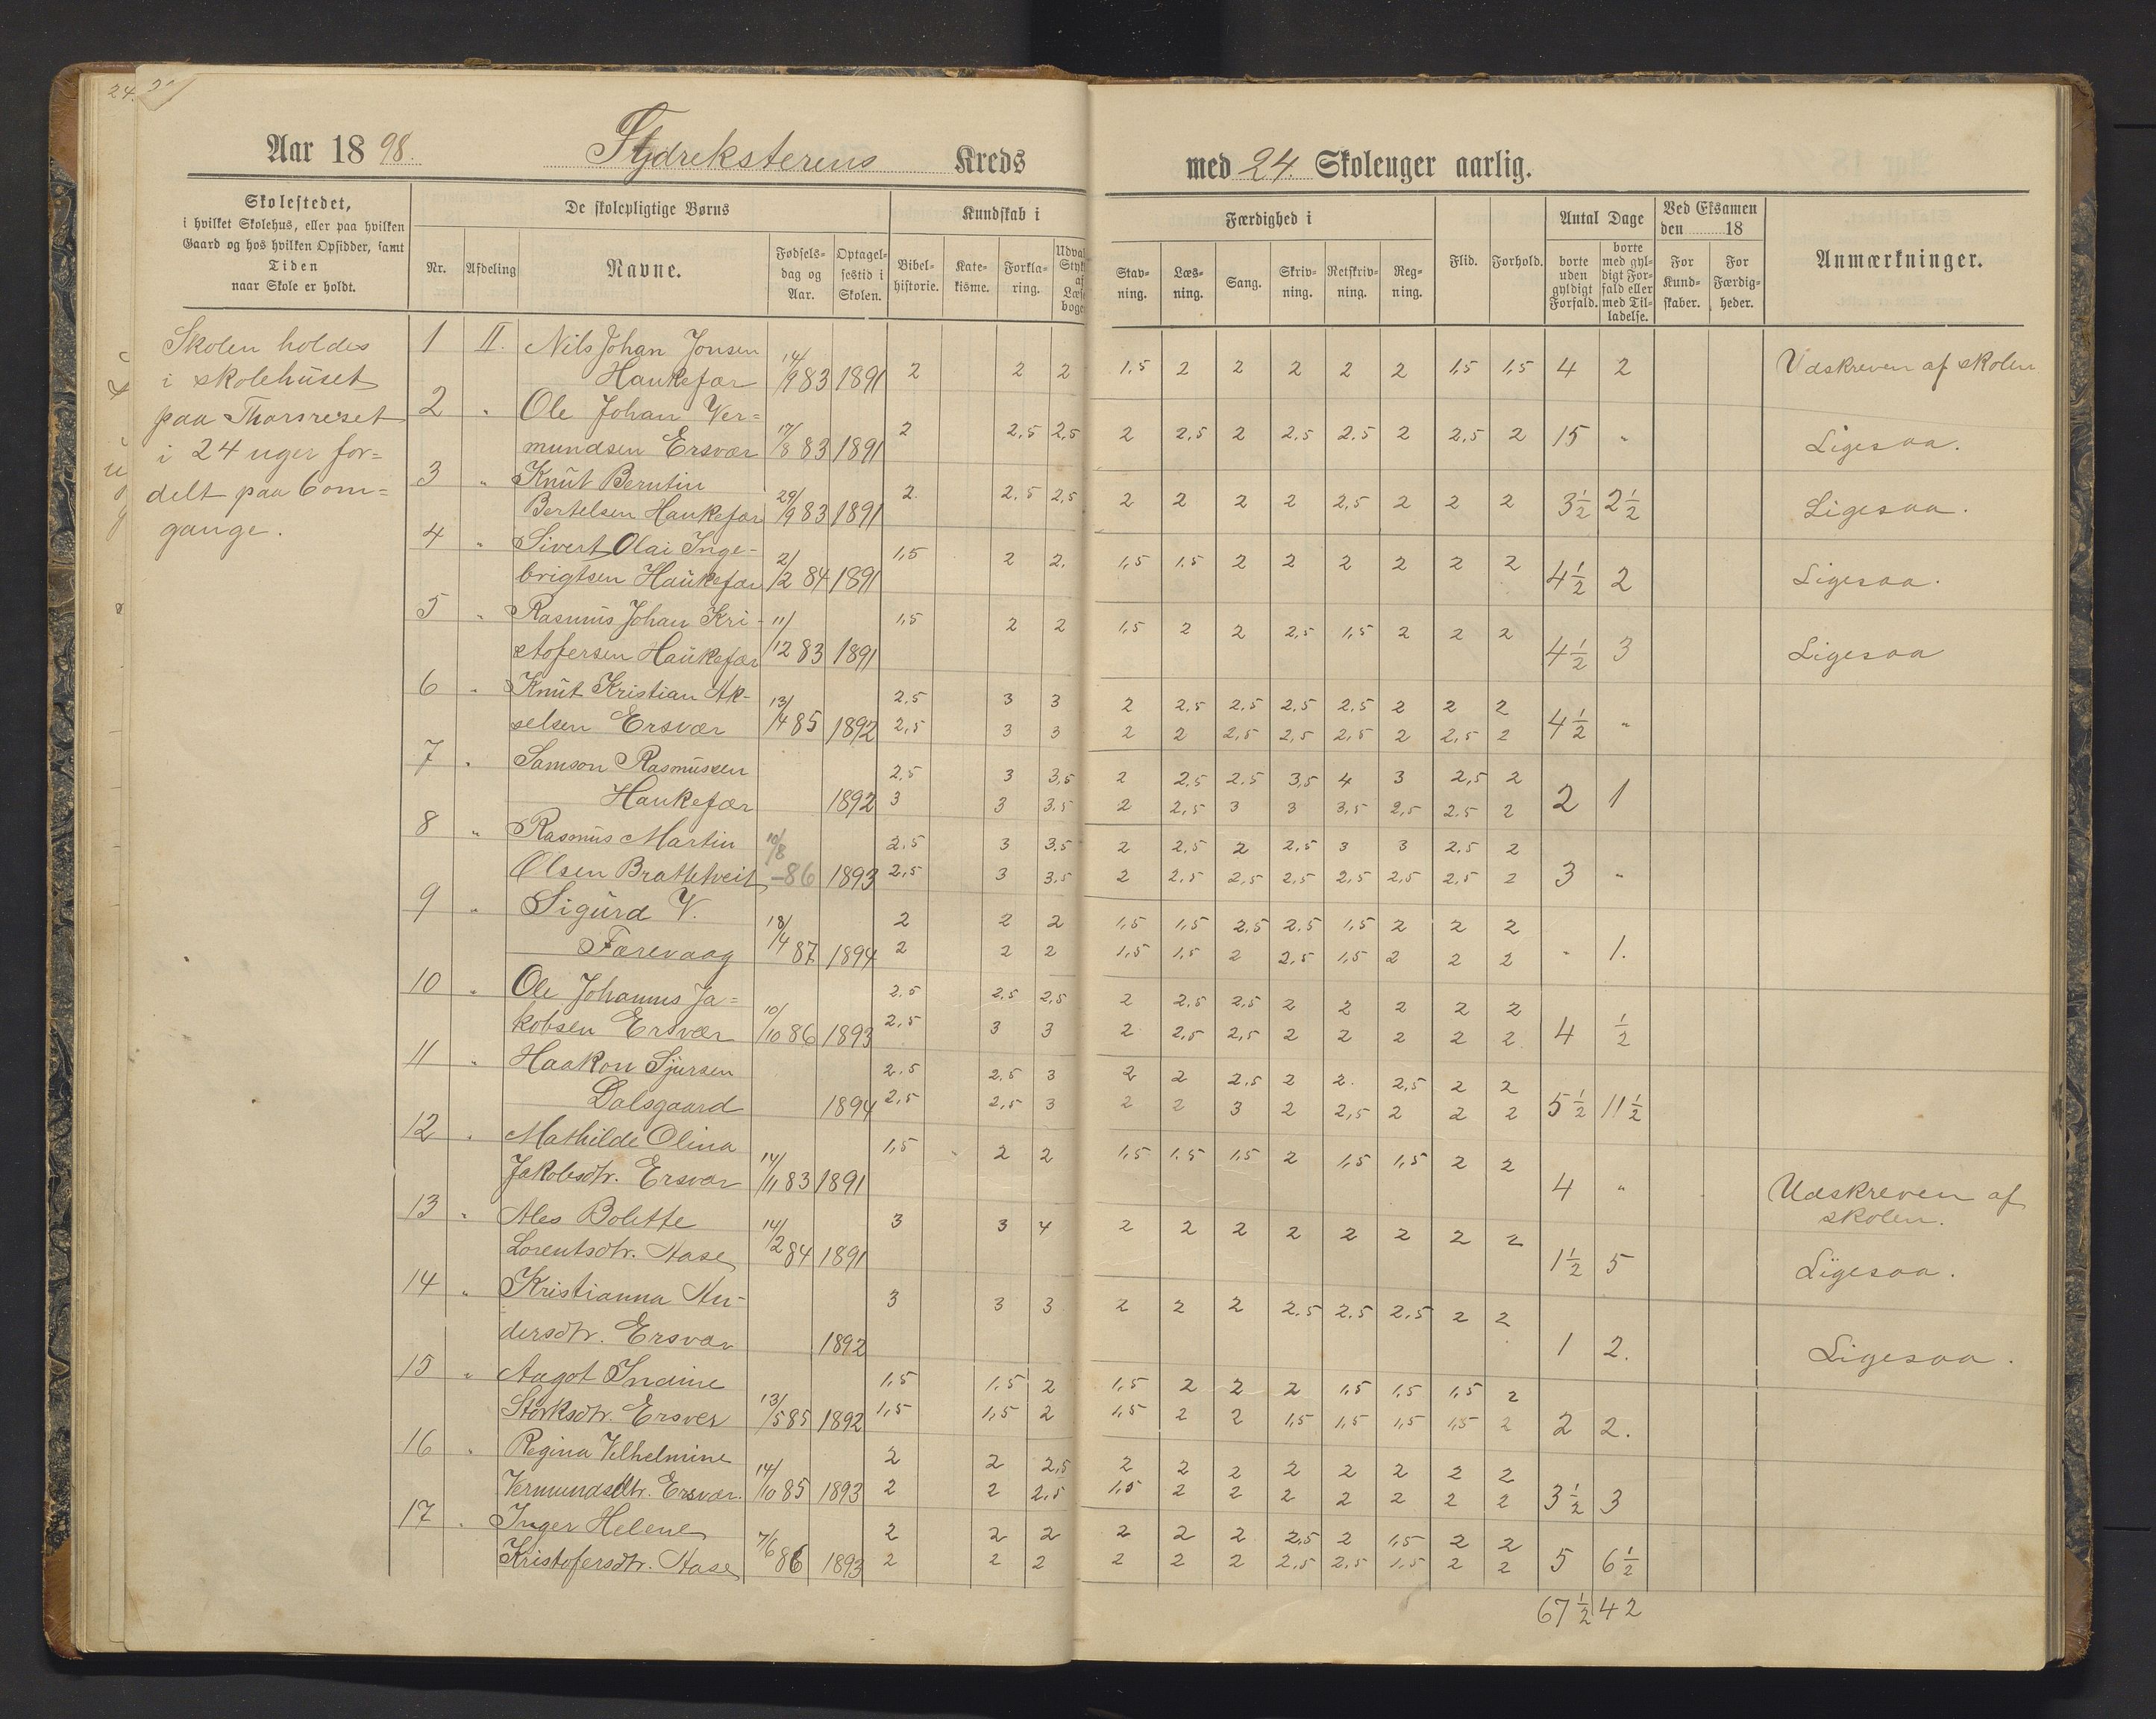 24.
Aar 1898. Fydreksterens Kreds med 24. Skoleuger aarlig.
Skolestedet,
i hvilket Skolehus, eller paa hvilken
Gaard og hos hvilken Opsidder, samt
Tiden
naar Skole er holdt.
De skolepligtige Børns
Nr. Afdeling Navne. Fødsels-dag og Aar. Optagel-sestid i Skolen.
Kundskab i
Bibel-historie. Kate-kisme. Forkla-ring. Udval Styk af Læse boge
Færdighed i
Stav-ning. Læs-ning. Sang. Skriv-ning. Retskriv-ning. Reg-ning.
Flid. Forhold.
Antal Dage
borte uden gyldigt Forfald. borte med gyl-digt For-fald eller med Til-ladelse.
Ved Eksamen
den 18
For Kund-skaber. For Færdig-heder.
Anmærkninger.
Skolen holdes
i skolehuset
paa Thorsreset
i 24 uger for=
delt paa 6 om=
gange.
1 II. Nils Johan Jonsen
Haukefær 14/9 83 1891 2 2 2 1,5 2 2 2 2 2 1,5 1,5 4 2 Udskreven af skolen
2 " Ole Johan Ver=
mundsen Ersvær 17/8 83 1891 2 2,5 2,5 2 2,5 2 2,5 2,5 2 2,5 2 15 " Ligesaa.
3 " Knut Berntin
Bertelsen Haukefær 29/9 83 1891 2. 2,5 2,5 2 2 2 2 2,5 2 2 2 3½ 2½ Ligesaa.
4 " Sivert Olai Inge-
brigtsen Haukefær 2/2 84 1891 1,5 2 2. 1,5 1,5 2 2 2 2 2 2 4½ 2 Ligesaa.
5 " Rasmus Johan Kri-
stofersen Haukefær 11/12 83 1891 1,5 2 2 1,5 2 2 2,5 1,5 2 2 2 4½ 3 Ligesaa
6 " Knut Kristian Ak- 2,5 3 3 2 2,5 2,5 2,5 2,5 2 2 2
selsen Ersvær 13/4 85 1892 2,5 3 3 2 2 2,5 2,5 2,5 2 2,5 2 4½ "
7 " Samson Rasmussen 2,5 3 3,5 2 2,5 2,5 3,5 4 3 2,5 2
Haukefær 1892 3 3 3,5 2 2,5 3 3 3,5 2,5 2,5 2 2 1
8 " Rasmus Martin 2,5 3 3,5 2 2,5 2 2,5 3 3 2,5 2
Olsen Brattetveit 10/8 -86 1893 2,5 3 3,5 2 2,5 2,5 2,5 2,5 2,5 2,5 2 3 "
9 " Sigurd V. 2 2 2 1,5 1,5 2,5 2,5 1,5 2 2 2
Færevaag 18/4 87 1894 2 2 2 1,5 1,5 2 2,5 1,5 2 2 2 " 1.
10 " Ole Johannes Ja= 2,5 2,5 2,5 2 2,5 2,5 2 2 2 2 2
kobsen Ersvær 10/10 86 1893 2,5 3 3 2 2,5 2,5 2 2 2 2 2 4 ½
11 " Haakon Sjursen 2,5 2,5 3 2 2 2,5 2 2. 2,5 2 2
Dalsgaard 1894 2,5 2,5 3 2 2 3 2 2,5 2 2 2 5½ 11½
12 " Mathilde Olina 1,5 2 2 1,5 1,5 1,5 2 1,5 1,5 2 2
Jakobsdtr. Ersvær 14/11 83 1891 4 " Udskreven af
skolen.
13 " Ales Bolette 3 3 4 2 2 2 2 2 2 2 2
Lorentsdtr. Aase 14/2 84 1891 1½ 5 Ligesaa.
14 " Kristianna An- 3 3 3 2 2 2 2,5 2,5 2,5 2 2
dersdtr. Ersvær 1892 1 2. Ligesaa.
15 " Aagot Indine 1,5 1,5 2 1,5 2 2 2 1,5 1,5 1,5 2
Storksdtr. Ersver 13/5 85 1892 1,5 1,5 2 1,5 2 2 1,5 1,5 1,5 1,5 2 2 2.
16 " Regina Vilhelmine 2 2 2,5 2 2 2 2 2 2 2 2
Vermundsdtr. Ersvær. 14/10 85 1893 2 2 2,5 1,5 2 2 2 2 2 2 2 3½ 3
17 " Inger Helene 2 2 2 2 2 2 2,5 2 1,5 2 2
Kristofersdtr. Aase 7/6 86 1893 2 2 2 2 2 2 2,5 2,5 1,5 2 2 5 6½
67½ 42